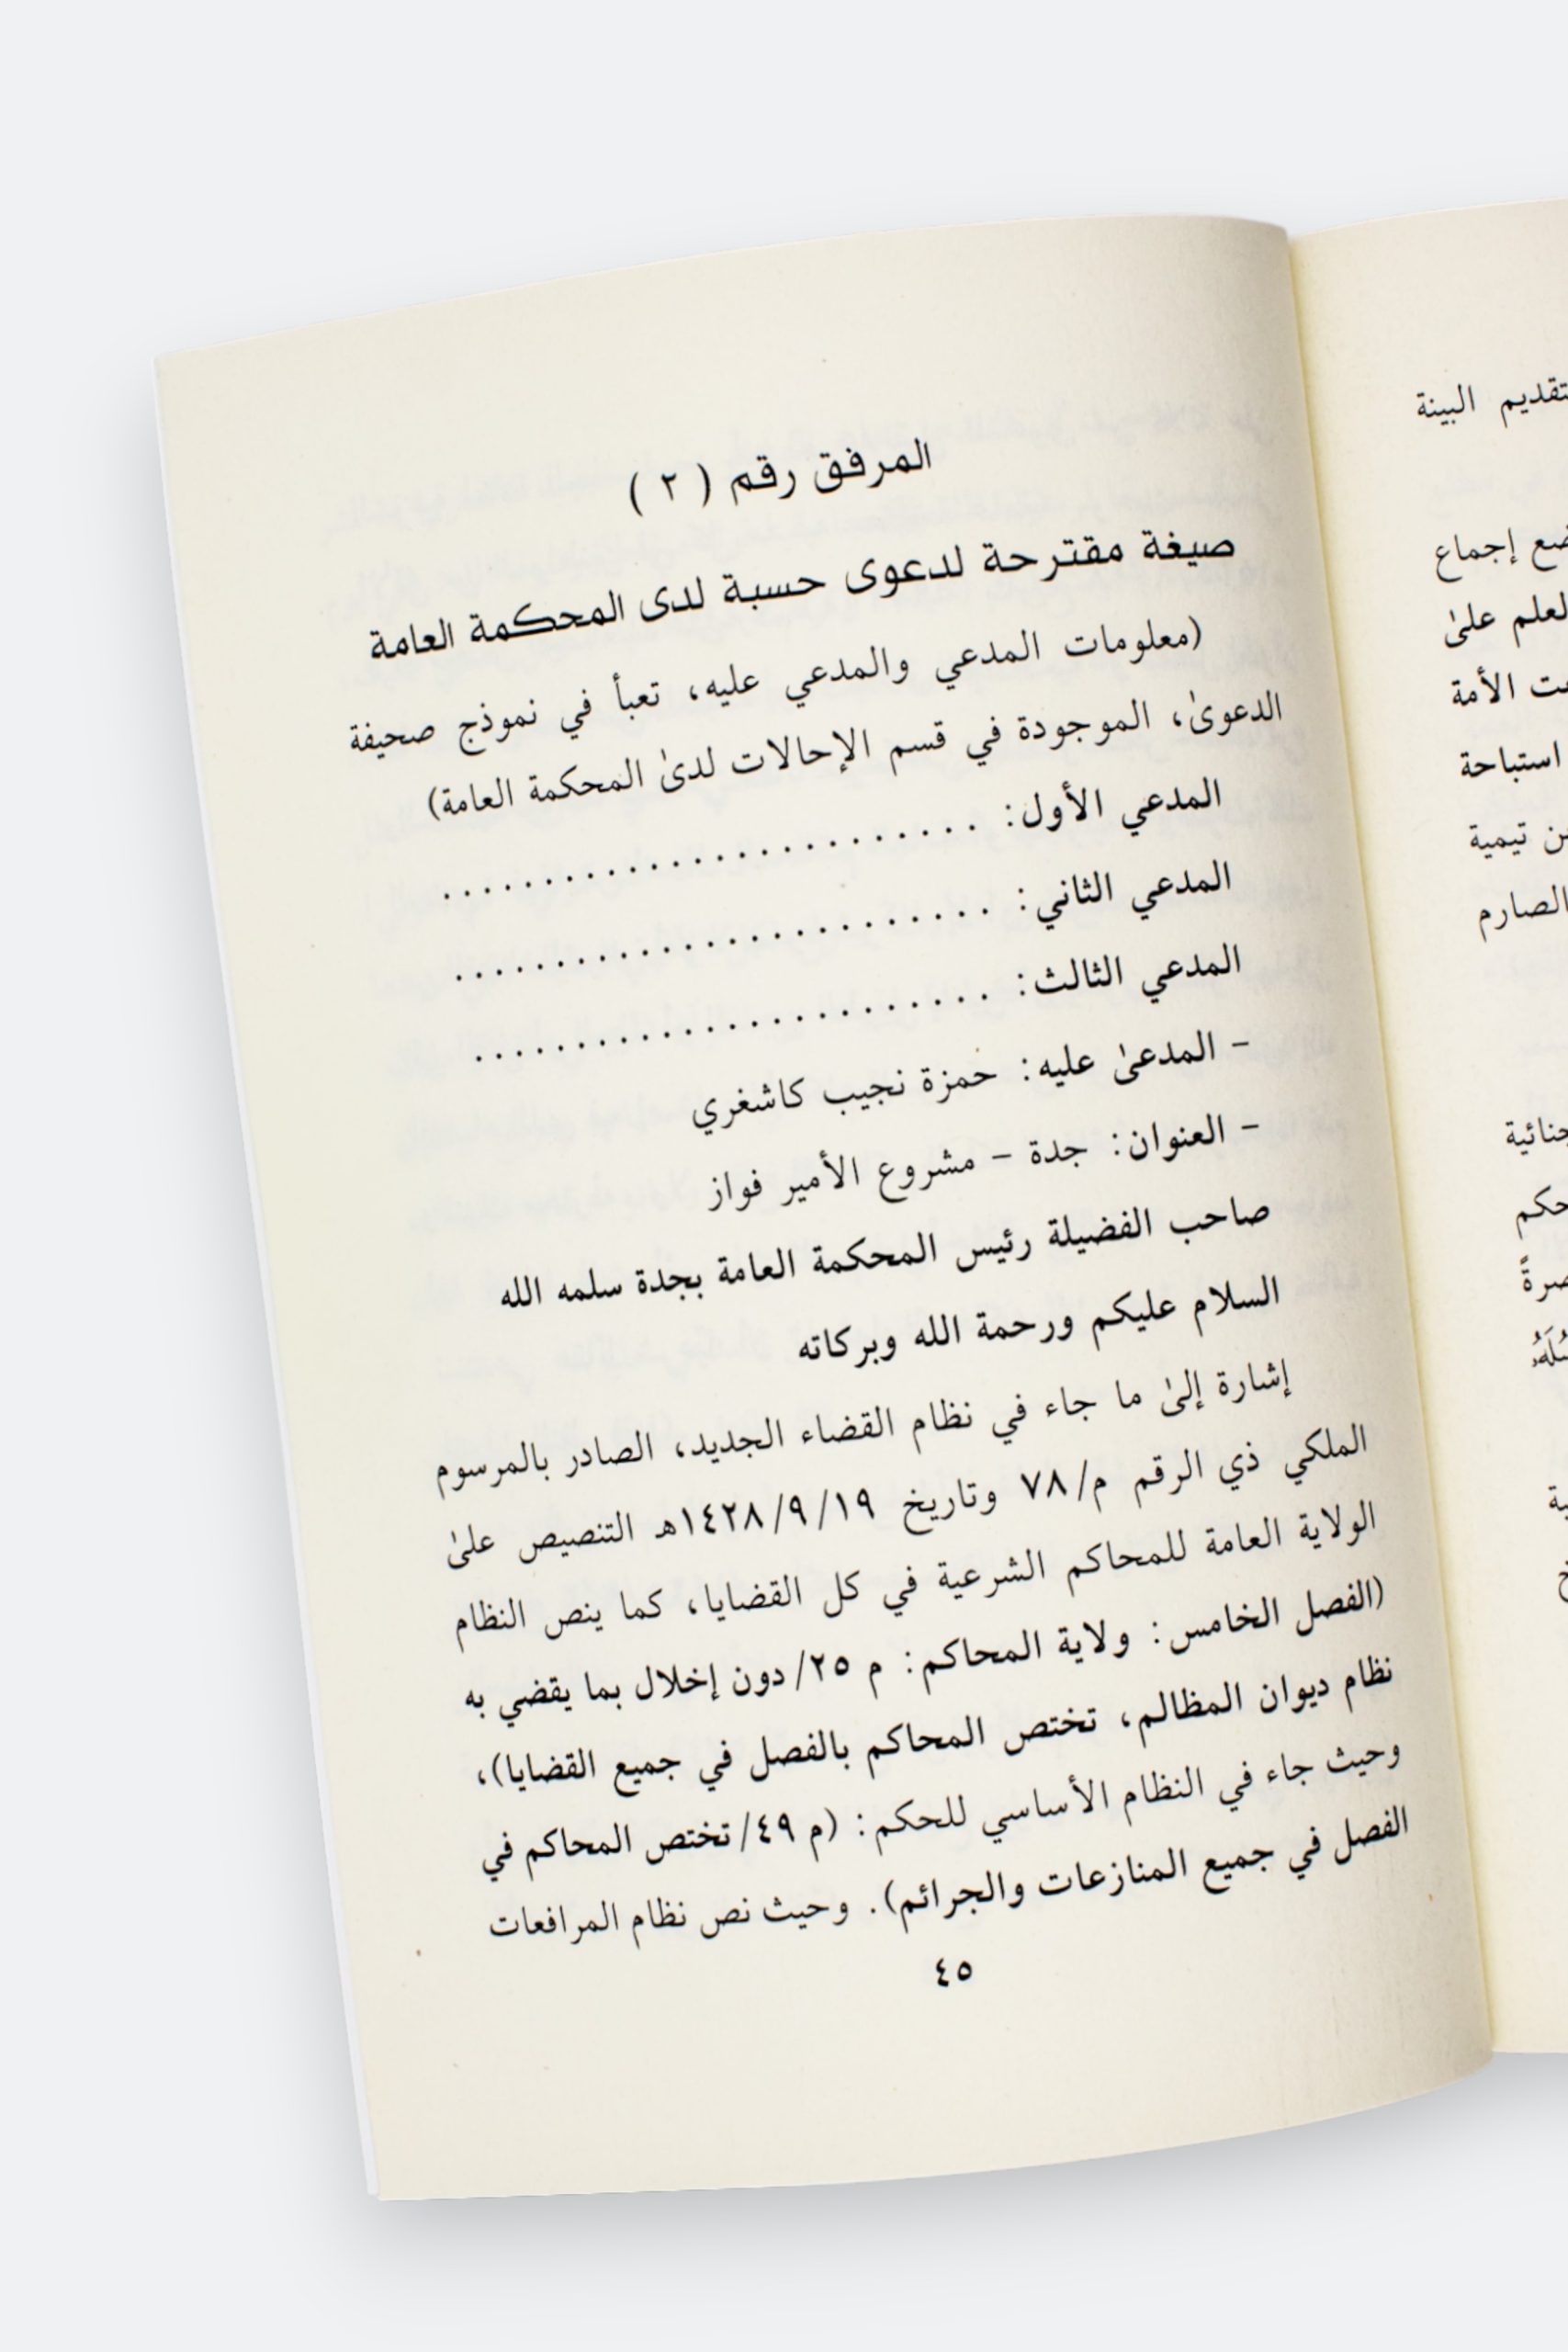 المرفق رقم ( ٢ )
صيغة مقترحة لدعوى حسبة لدى المحكمة العامة
(معلومات المدعي والمدعي عليه، تعبأ في نموذج صحيفة
الدعوىٰ، الموجودة في قسم الإحالات لدىٰ المحكمة العامة)
المدعي الأول: . . . . . . . . . . . . . . . . . . . . . . . . . . .
المدعي الثاني: . . . . . . . . . . . . . . . . . . . . . . . . . . .
المدعي الثالث: . . . . . . . . . . . . . . . . . . . . . . . . . .
- المدعىٰ عليه: حمزة نجيب كاشغري
- العنوان: جدة - مشروع الأمير فواز
صاحب الفضيلة رئيس المحكمة العامة بجدة سلمه الله
السلام عليكم ورحمة الله وبركاته
إشارة إلىٰ ما جاء في نظام القضاء الجديد، الصادر بالمرسوم
الملكي ذي الرقم م/٧٨ وتاريخ ١٤٢٨/٩/١٩هـ التنصيص علىٰ
الولاية العامة للمحاكم الشرعية في كل القضايا، كما ينص النظام
(الفصل الخامس: ولاية المحاكم: م ٢٥/دون إخلال بما يقضي به
نظام ديوان المظالم، تختص المحاكم بالفصل في جميع القضايا)،
وحيث جاء في النظام الأساسي للحكم: (م ٤٩/تختص المحاكم في
الفصل في جميع المنازعات والجرائم). وحيث نص نظام المرافعات
٤٥
تقديم البينة
إجماع
علىٰ
الأمة
استباحة
تيمية
الصارم